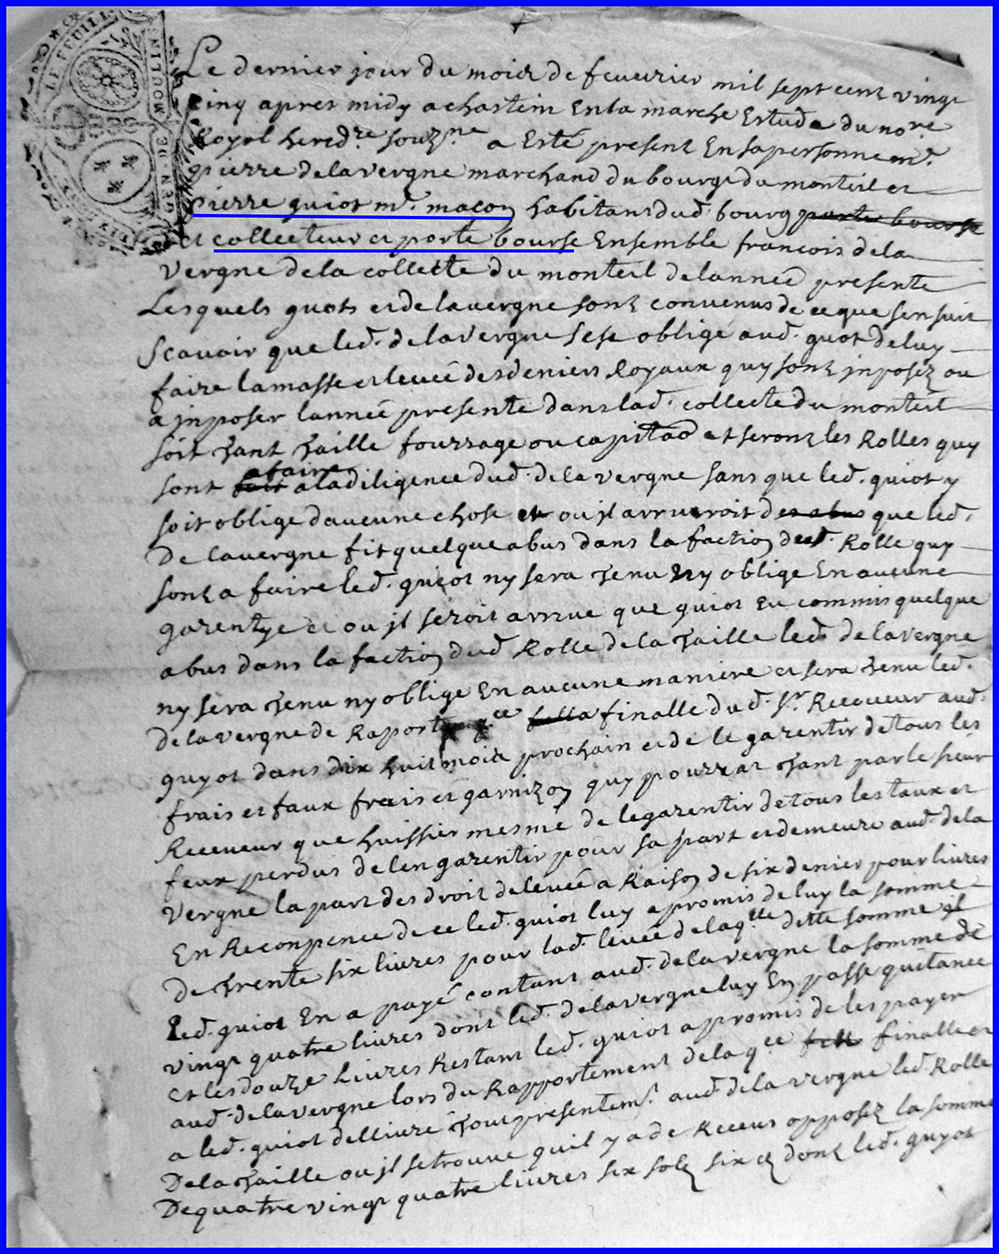 LE FEUILL
GEN. DE MOULIN
Le dernier jour du mois de feuvrier mil sept cent vingt
cinq apres midy a chastein En la marche Estude du no.re
Royal hered.re souz.ne a Esté present En sa personne m.e
pierre delavergne marchand du bourg du monteil et
pierre quiot m.e maçon habitans dud. bourg porte bourse
et collecteur et porte bourse Ensemble françois dela
vergne de la collecte du monteil de lanneé presente
Lesquels quiots et delavergne sont convenus de ce que sensuit
Scavoir que led. delavergne sest obligé aud. quiot de luy
faire lamasse et leveé des deniers Royaux quy sont jnposez ou
a jnposer lanneé presente dans lad. collecte du monteil
soit tant taille fourrage ou capitaõ et seront les Rolles quy
afaire
sont a la diligence dud. delavergne sans que led. quiot y
soit obligé daucune chose et ou jl arriveroit des abus que led.
Delavergne fit quelque abus dans la faction desd. Rolle quy
sont a faire led. quiot ny sera tenu ny obligé En aucune
garentye et ou jl seroit arrive que quiot Eu commis quelque
abus dans la faction dud. Rolle de la taille led. delavergne
ny sera tenu ny obligé En aucune maniere et sera tenu led.
delavergne de Raporter finalle dud. s.r Receveur aud.
guyot dans dix huit mois prochain et de le garentir de tous les
frais et faux frais et garnizon quy pourrat tant par le sieur
Receveur que huissier mesme de le garentir de tous les taux et
feux perdus de len garentir pour sa part et demeure aud. dela
vergne la part des droit de leveé a Raison de six denier pour livres
En Reconpence de ce led. quiot luy a promis de luy la somme
de trente six livres pour lad. leveé de laq.lle ditte somme
Led. quiot En a payé contant aud. delavergne la somme de
vingt quatre livres dont led. delavergne luy En passe quitance
et les douze Livres Restant led. quiot a promis de les payer
aud. delavergne lors du Rapportement de la q.ce finalle et
a led. quiot dellivré tout presentem.t aud. delavergne led. Rolle
De la taille ou jl se trouve quil y a de Receus opposez la somme
De quatre vingt quatre livres six solz six d donc led. guyot